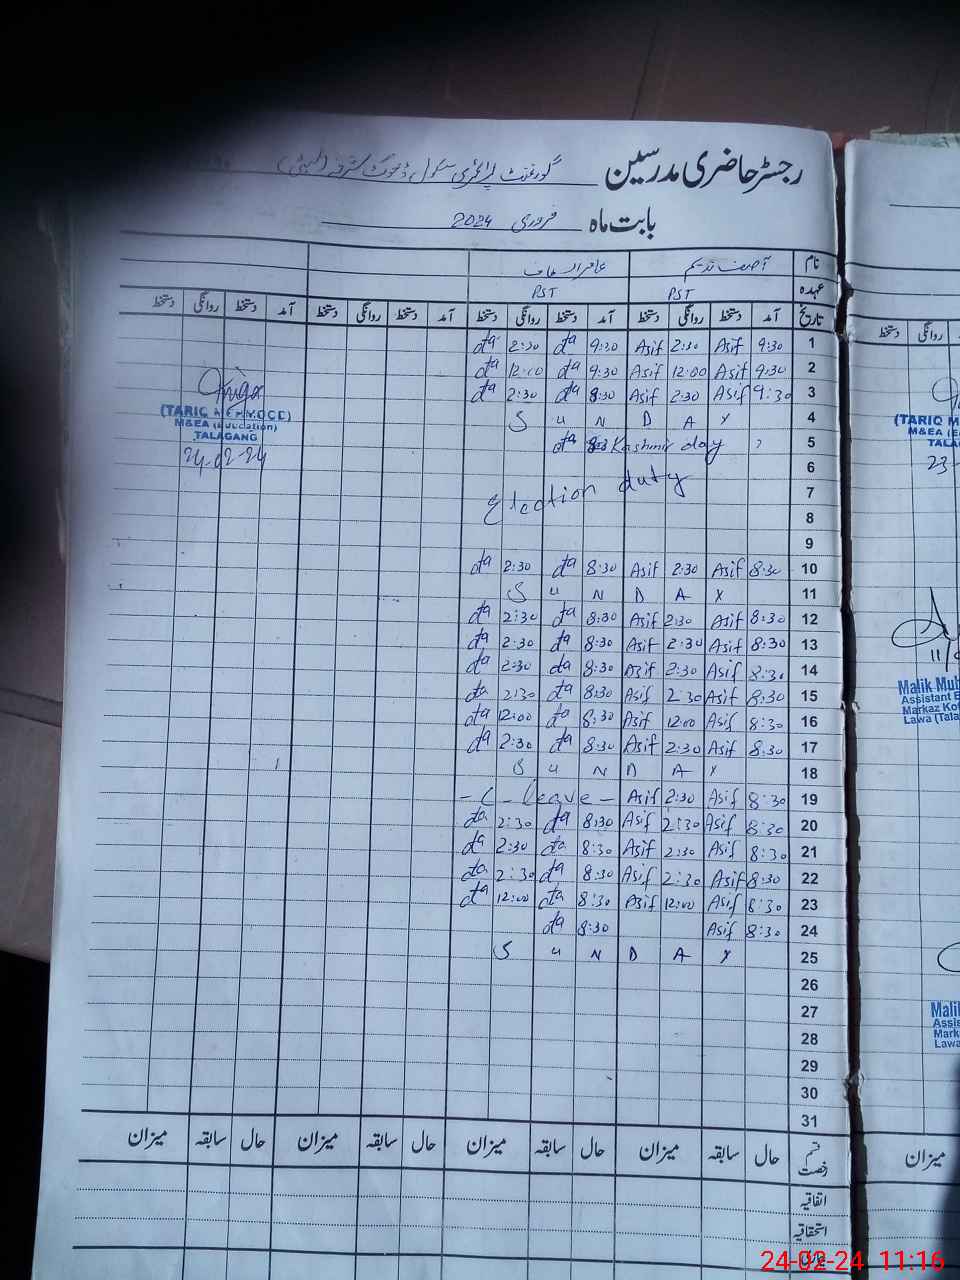 رجسٹر حاضری مدرسین گورنمنٹ پرائمری سکول ڈھوک
بابت ماہ فروری 2024
نام آصف ندیم عامر
عہدہ PST PST
تاریخ آمد دستخط روانگی دستخط آمد دستخط روانگی دستخط آمد دستخط روانگی دستخط آمد دستخط روانگی دستخط
1 9:30 Asif 2:30 Asif 9:30 2:30
2 9:30 Asif 12:00 Asif 9:30 12:00
3 9:30 Asif 2:30 Asif 8:30 2:30
4 S U N D A Y
5 Kashmir day
6
7 Election duty
8
9
10 8:30 Asif 2:30 Asif 8:30 2:30
11 S U N D A Y
12 8:30 Asif 2:30 Asif 8:30 2:30
13 8:30 Asif 2:30 Asif 8:30 2:30
14 8:30 Asif 2:30 Asif 8:30 2:30
15 8:30 Asif 2:30 Asif 8:30 2:30
16 8:30 Asif 12:00 Asif 8:30 12:00
17 8:30 Asif 2:30 Asif 8:30 2:30
18 S U N D A Y
19 8:30 Asif 2:30 Asif - C - leave -
20 8:30 Asif 2:30 Asif 8:30 2:30
21 8:30 Asif 2:30 Asif 8:30 2:30
22 8:30 Asif 2:30 Asif 8:30 2:30
23 8:30 Asif 12:00 Asif 8:30 12:00
24 8:30 Asif 8:30
25 S U N D A Y
26
27
28
29
30
31
قسم رخصت حال سابقہ میزان حال سابقہ میزان حال سابقہ میزان حال سابقہ میزان
اتفاقیہ
استحقاقیہ
(TARIQ MEHMOOD)
M&EA (Education)
TALAGANG
24-02-24
دستخط روانگی
(TARIQ M
M&EA (E
TALA
23-
11/
Malik Muh
Assistant E
Markaz Kot
Lawa (Tala
Malik
Assis
Mark
Lawa
میزان
24-02-24 11:16